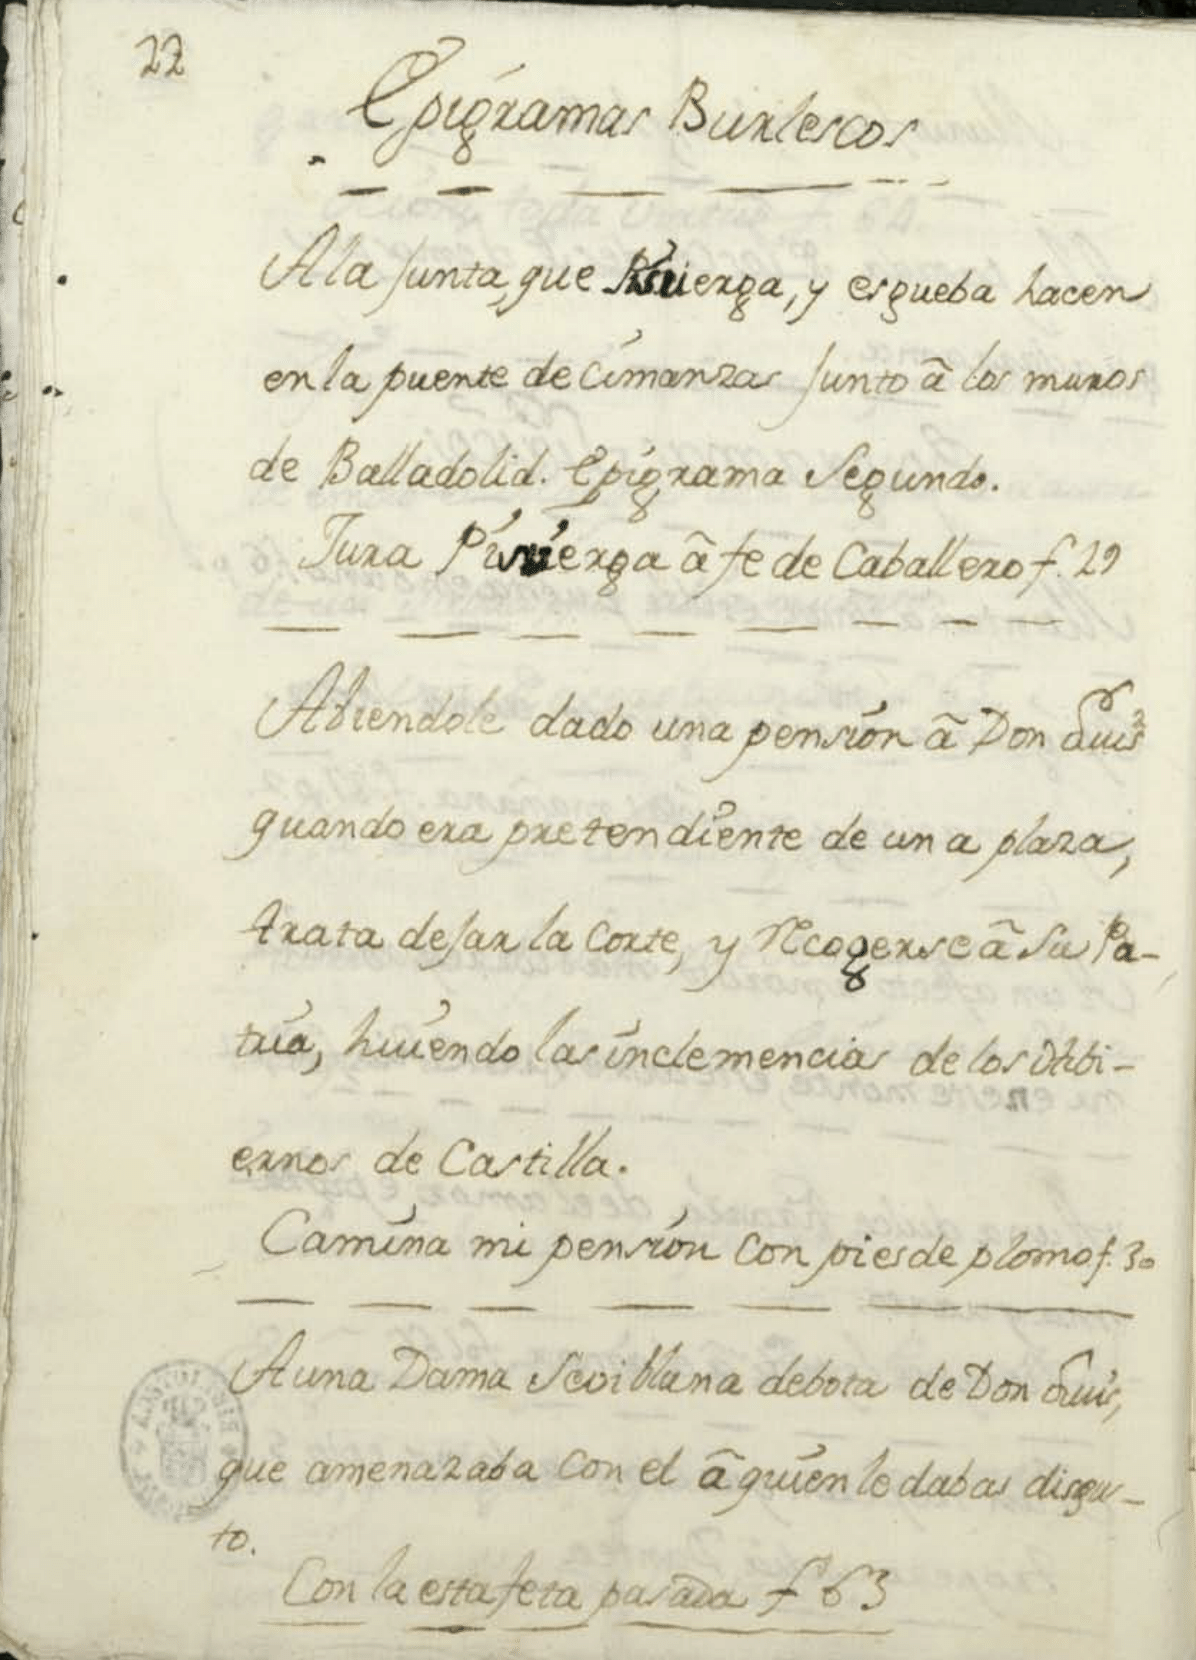 22
Epigramas Burlescos
A la Junta, que Pisuerga, y esgueba hacen
en la puente de Cimanzas Junto â los muros
de Balladolid. Epigrama Segundo.
Jura Pisuerga â fe de Caballero f. 29
Abiendole dado una pensión â Don Luis
quando era pretendiente de una plaza,
trata dejar la Corte, y recogerse â Su Pa-
tria, huiendo las inclemencias de los Ibi-
ernos de Castilla.
Camina mi pensión con pies de plomo f. 30
A una Dama Sevillana debota de Don Luis,
que amenazaba con el â quien le dabas disgus-
to.
Con la estafeta pasada f 63